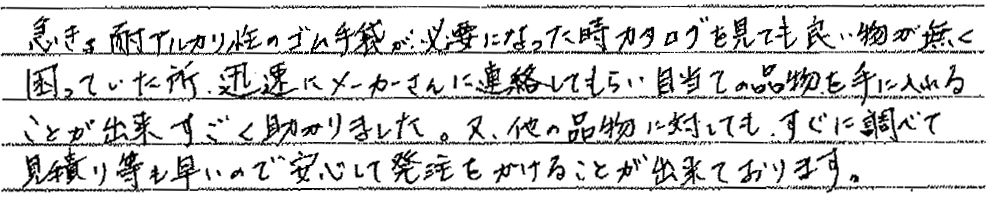 急きょ耐アルカリ性のゴム手袋が必要になった時カタログを見ても良い物が無く
困っていた所、迅速にメーカーさんに連絡してもらい目当ての品物を手に入れる
ことが出来すごく助かりました。又、他の品物に対しても、すぐに調べて
見積り等も早いので安心して発注をかけることが出来ております。